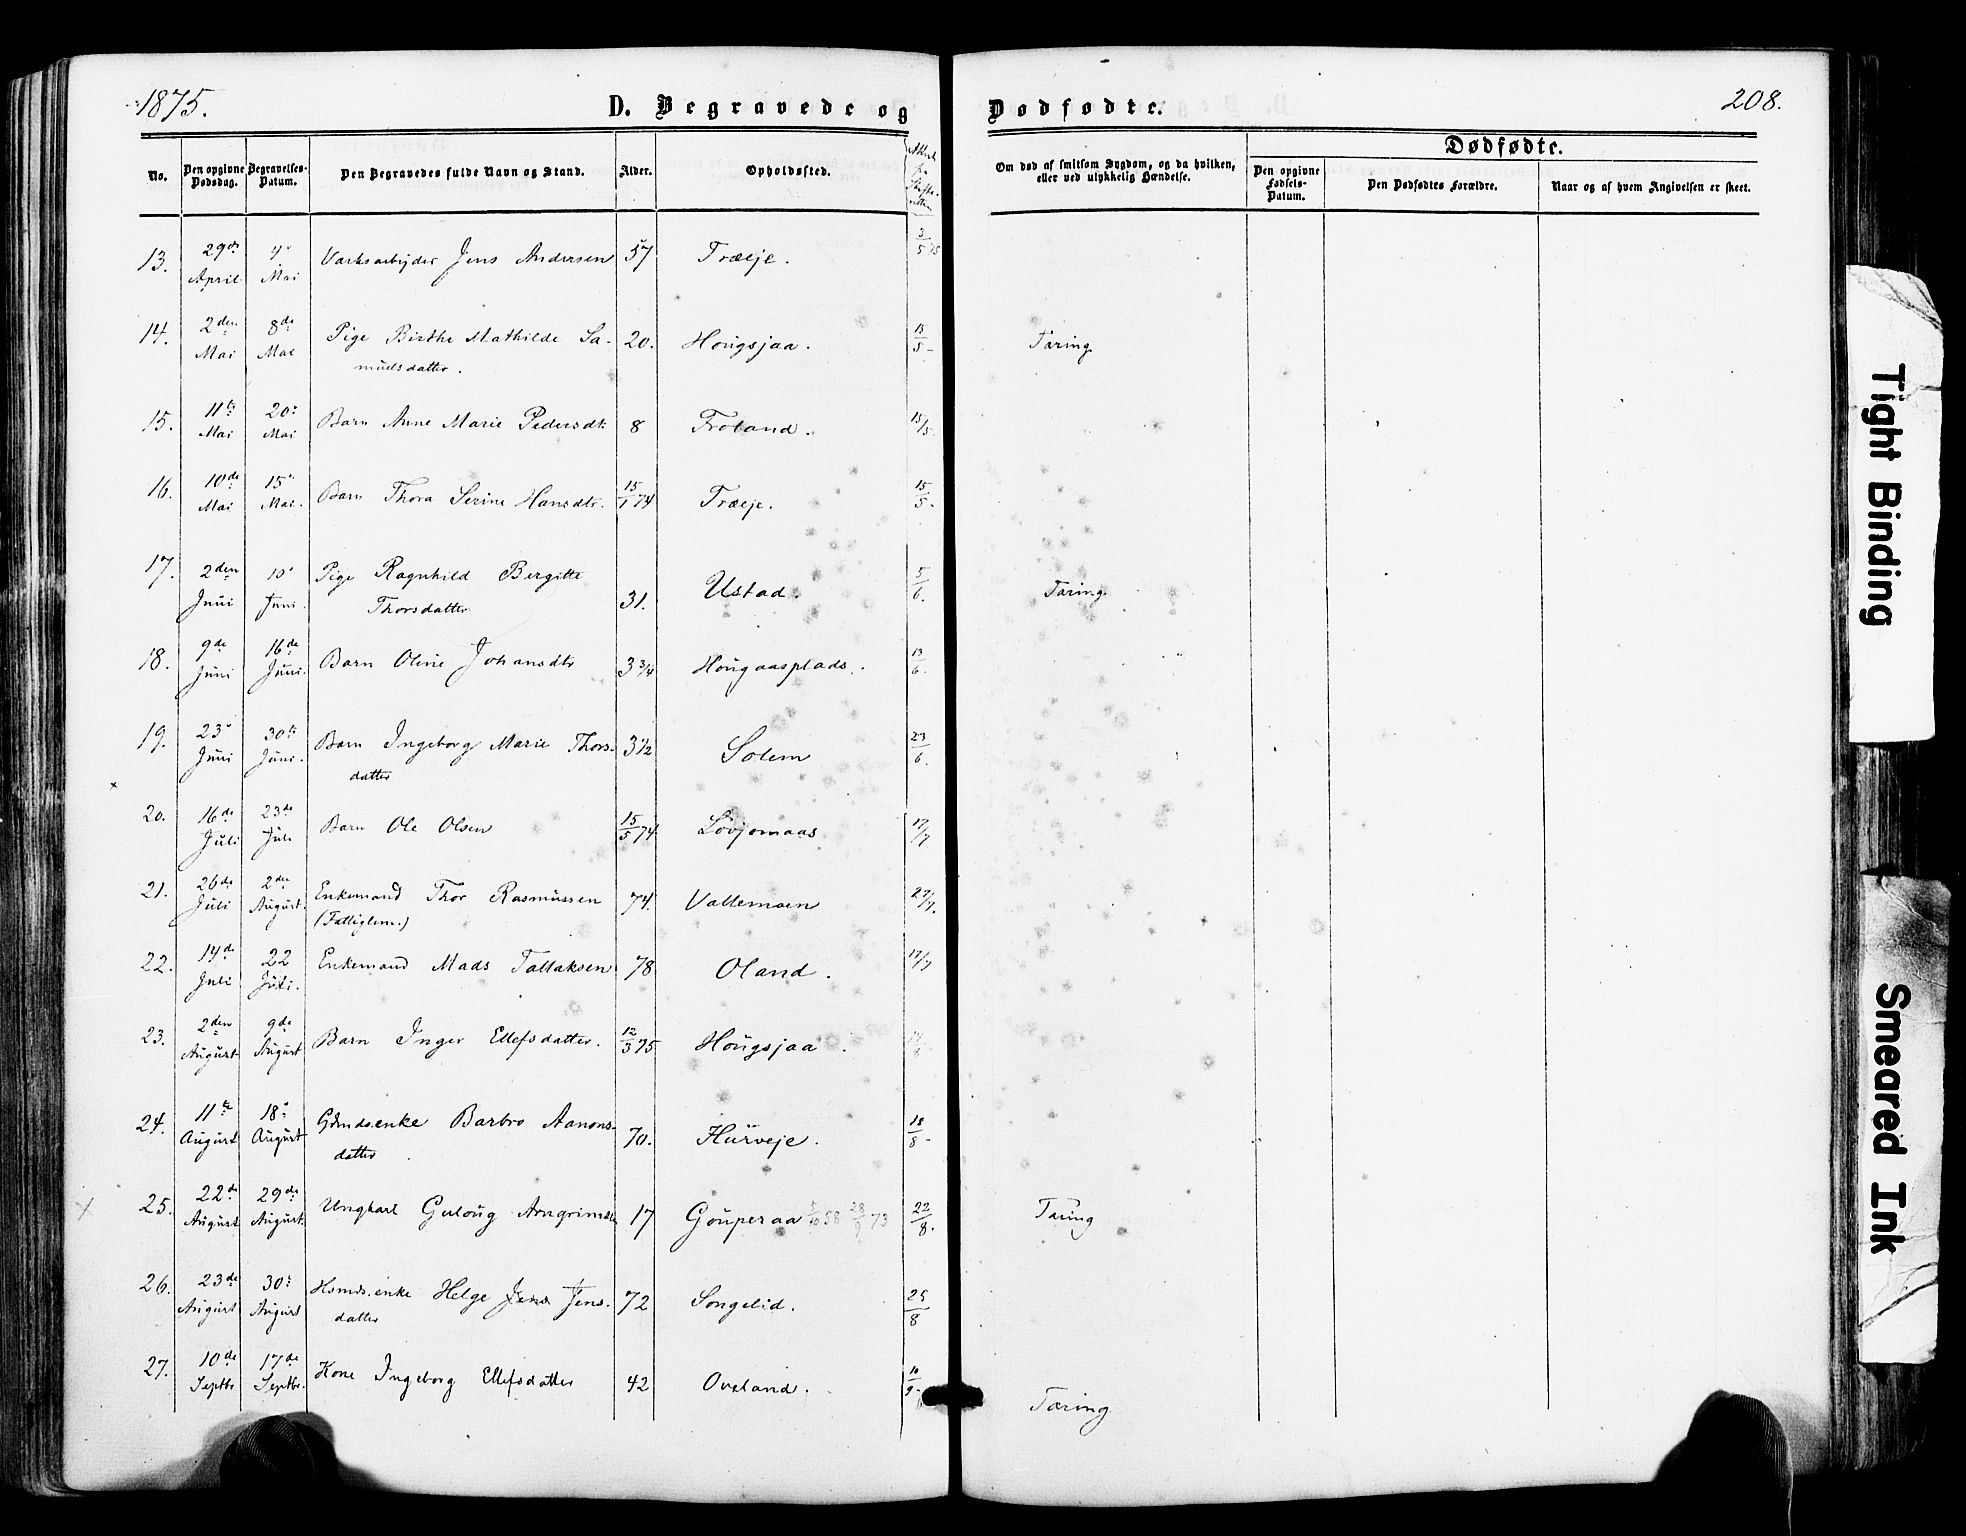 1875.
D. Begravede og Dødfødte.
208.
No.
Den opgivne Dødsdag.
Begravelses-Datum.
Den Begravedes fulde Navn og Stand.
Alder.
Opholdssted.
Om død af smitsom Sygdom, og da hvilken, eller ved ulykkelig Hændelse.
Dødfødte.
Den opgivne Fødsels-Datum.
Den Dødfødtes Forældre.
Naar og af hvem Angivelsen er skeet.
13. 29de April 4' Mai Værksarbeider Jens Andersen 57 Træeje. 3/5 75
14. 2den Mai 8de Mai Pige Birthe Mathilde Sa- 20. Hougsjaa. 15/5 - Tæring
muelsdatter.
15. 11te Mai 20' Mai Barn Anne Marie Pedersdt. 8 Froland. 15/5-
16. 10de Mai 15' Mai. Barn Thora Serine Hansdtr. 15/1 74 Træeje. 15/5-
17. 2den Juni 10' Juni. Pige Ragnhild Bergitte
Thorsdatter 31. Ustad. 5/6. Tæring.
18. 9de Juni 16de Juni. Barn Oline Johansdtr 3 3/4 Hougaasplads. 13/6.
19. 23' Juni 30te Juni. Barn Ingeborg Marie Thors- 3 1/2 Solem 23/6.
datter
20. 16de Juli 23de Juli Barn Ole Olsen 15/5 74 Løvjomaas 17/7
21. 26de Juli 2den August. Enkemand Thor Rasmussen 74. Vallemoen 27/7.
(Fattiglem.)
22. 14de Juli 22 Juli. Enkemand Mads Tallaksen 78 Oland. 17/7
23. 2den August 9de August Barn Inger Ellefsdatter. 12/3 75 Hougsjaa.
24. 11te August 18' August Gdmds.enke Barbro Aanons- 70. Hurveje. 18/8-
datter
25. 22de August 29de August. Ungkarl Guloug Arngrimsen 17 Gouperaa 5/10 58 28/9 73 22/8. Tæring
26. 23de August 30' August Hsmds.enke Helge Jens Jens- 72 Songelid. 25/8
datter
27. 10de Septbr 17de Septbr. Kone Ingeborg Ellefsdatter 42 Oveland. 10/9- Tæring
Tight Binding
Smeared Ink